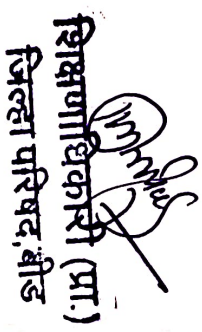 शिक्षणाधिकारी (प्रा.)
जिल्हा परिषद, बीड